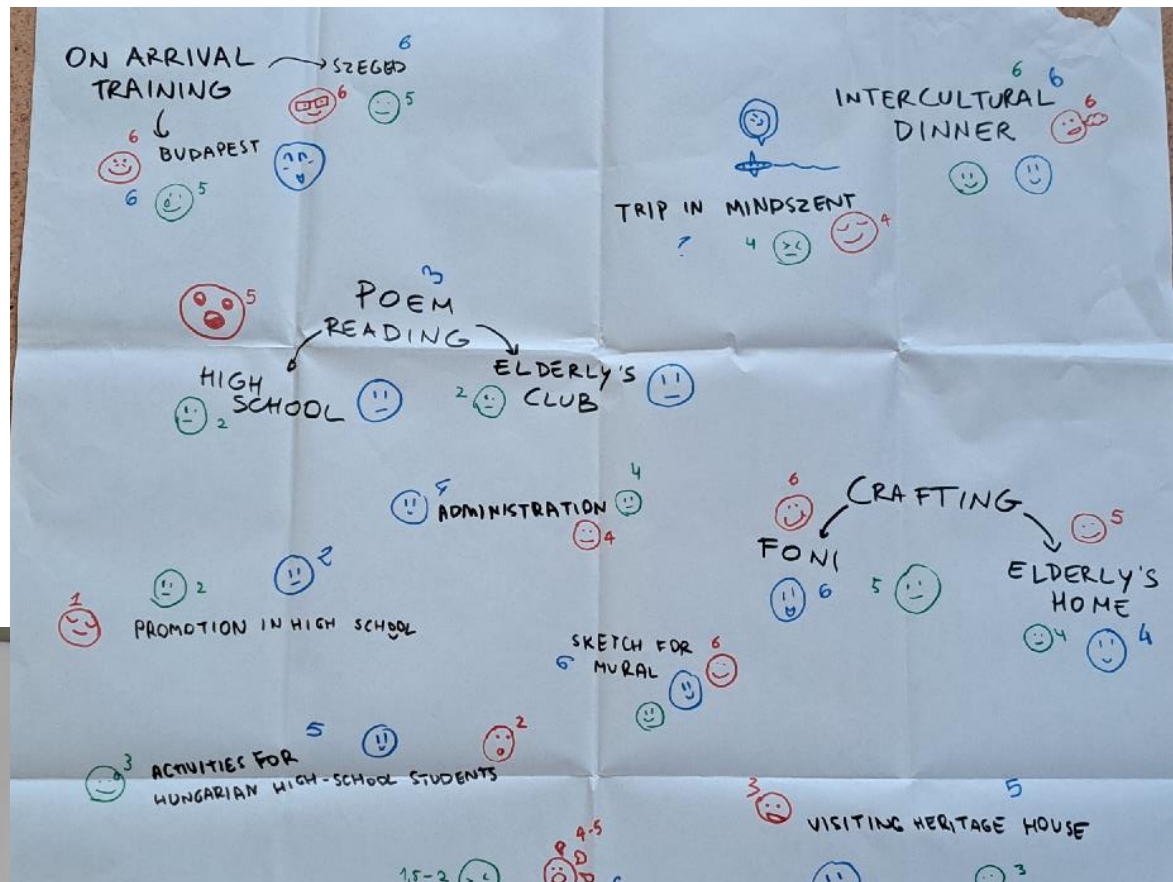 ON ARRIVAL
TRAINING
6
SZEGED
6
5
6
BUDAPEST
6
5
6
6
INTERCULTURAL
6
DINNER
TRIP IN MINDSZENT
?
4
4
3
POEM
READING
5
HIGH
SCHOOL
2
ELDERLY'S
CLUB
2
4
ADMINISTRATION
4
4
CRAFTING
6
FONI
6
5
5
ELDERLY'S
HOME
4
4
1
2
2
PROMOTION IN HIGH SCHOOL
SKETCH FOR
MURAL
6
6
3
5
2
ACTIVITIES FOR
HUNGARIAN HIGH-SCHOOL STUDENTS
3
5
VISITING HERITAGE HOUSE
3
1,5-2
4-5